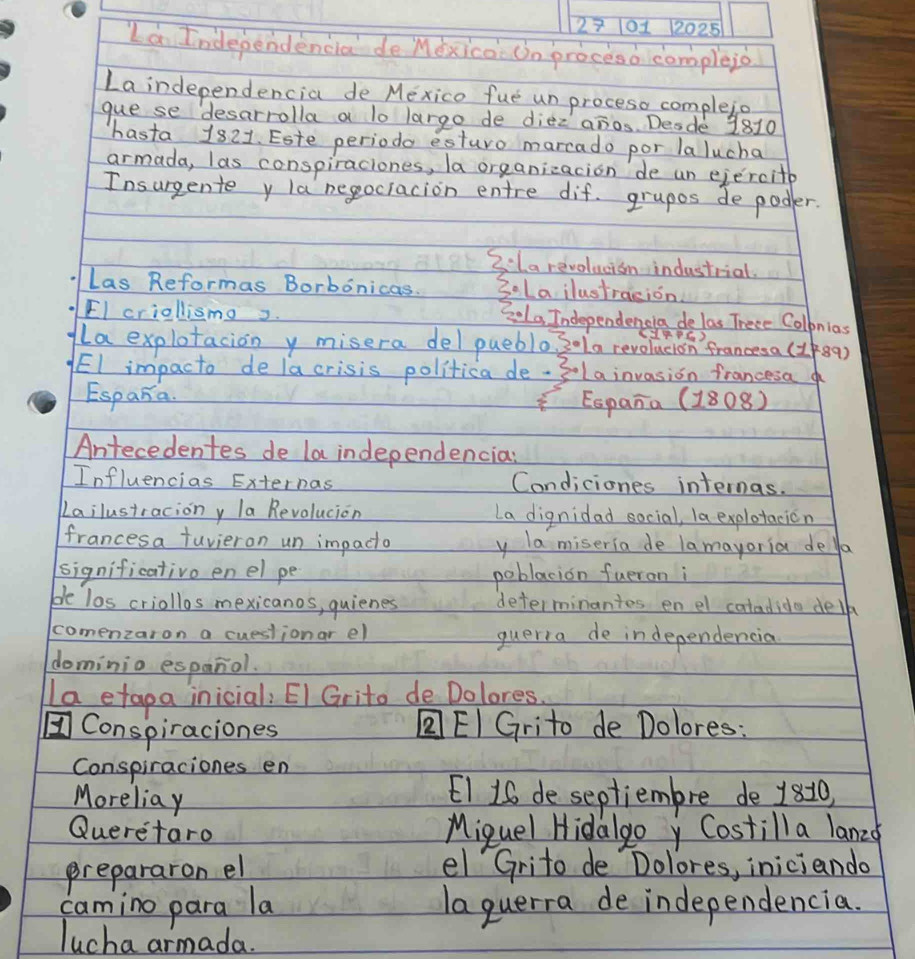 27 01 2025
La Independencia de México: Un proceso complejo
La independencia de México fue un proceso complejo
que se desarrolla a lo largo de diez años. Desde 1810
hasta 1821. Este periodo estuvo marcado por la lucha
armada, las conspiraciones, la organización de un ejército
Insurgente y la negociación entre dif. grupos de poder.
• La revolución industrial.
• Las Reformas Borbónicas.
• La ilustración
• El criollismo
• La Independencia de las Trece Colonias
(1776)
• La explotación y misera del pueblo.
• La revolución francesa (1789)
• El impacto de la crisis política de
• La invasión francesa a
España.
España (1808)
Antecedentes de la independencia:
Influencias Externas
La ilustración y la Revolución
francesa tuvieron un impacto
significativo en el pe
de los criollos mexicanos, quienes
comenzaron a cuestionar el
dominio español.
Condiciones internas.
La dignidad social, la explotación
y la miseria de la mayoría de la
población fueron i
determinantes en el catadido de la
guerra de independencia
La etapa inicial: El Grito de Dolores.
1 Conspiraciones
Conspiraciones en
Morelia y
Querétaro
prepararon el
camino para la
lucha armada.
2 El Grito de Dolores:
El 16 de septiembre de 1810,
Miguel Hidalgo y Costilla lanzó
el Grito de Dolores, iniciando
la guerra de independencia.